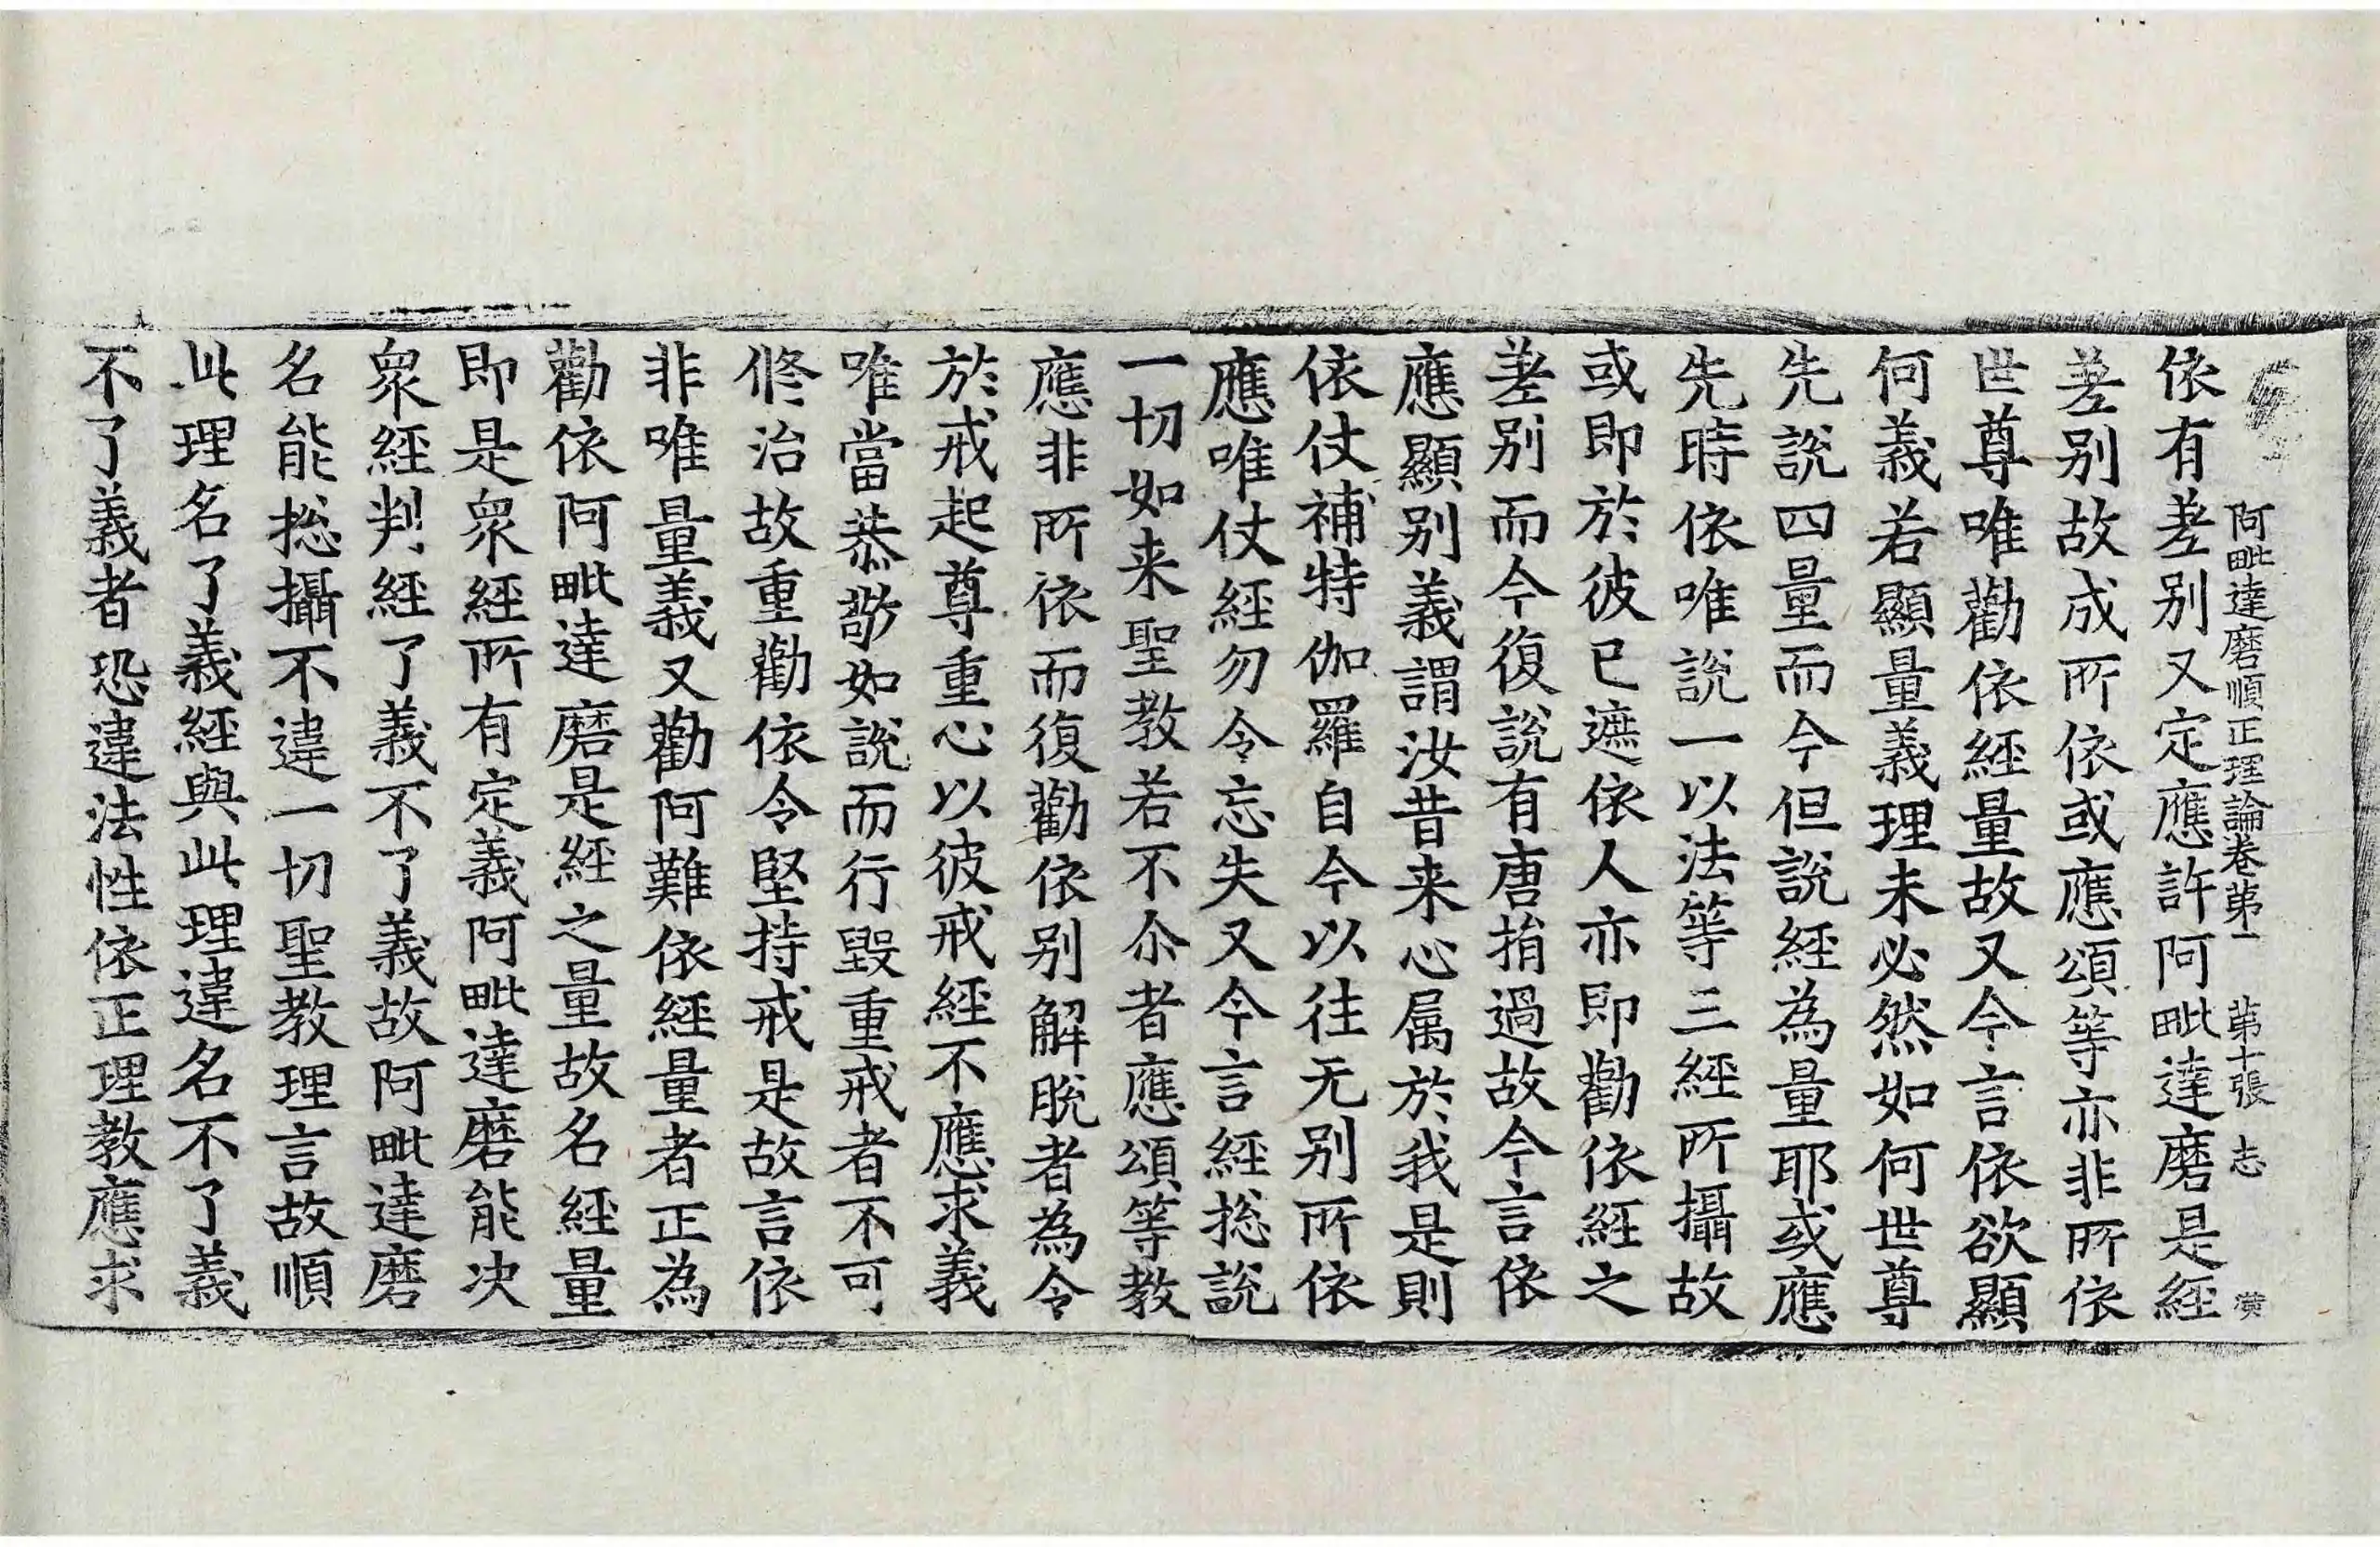 阿毗達磨順正理論卷第一 第十張 志 黃
依有差别又定應許阿毗達磨是經
差别故成所依或應頌等亦非所依
世尊唯勸依經量故又今言依欲顯
何義若顯量義理未必然如何世尊
先說四量而今但說經為量耶或應
先時依唯說一以法等三經所攝故
或即於彼已遮依人亦即勸依經之
差别而今復說有唐捐過故今言依
應顯别義謂汝昔来心属於我是則
依仗補特伽羅自今以往无别所依
應唯仗經勿令忘失又今言經捴說
一切如来聖教若不尒者應頌等教
應非所依而復勸依别解脫者為令
於戒起尊重心以彼戒經不應求義
唯當恭敬如說而行毀重戒者不可
修治故重勸依令堅持戒是故言依
非唯量義又勸阿難依經量者正為
勸依阿毗達磨是經之量故名經量
即是衆經所有定義阿毗達磨能決
衆經判經了義不了義故阿毗達磨
名能捴攝不違一切聖教理言故順
此理名了義經與此理違名不了義
不了義者恐違法性依正理教應求